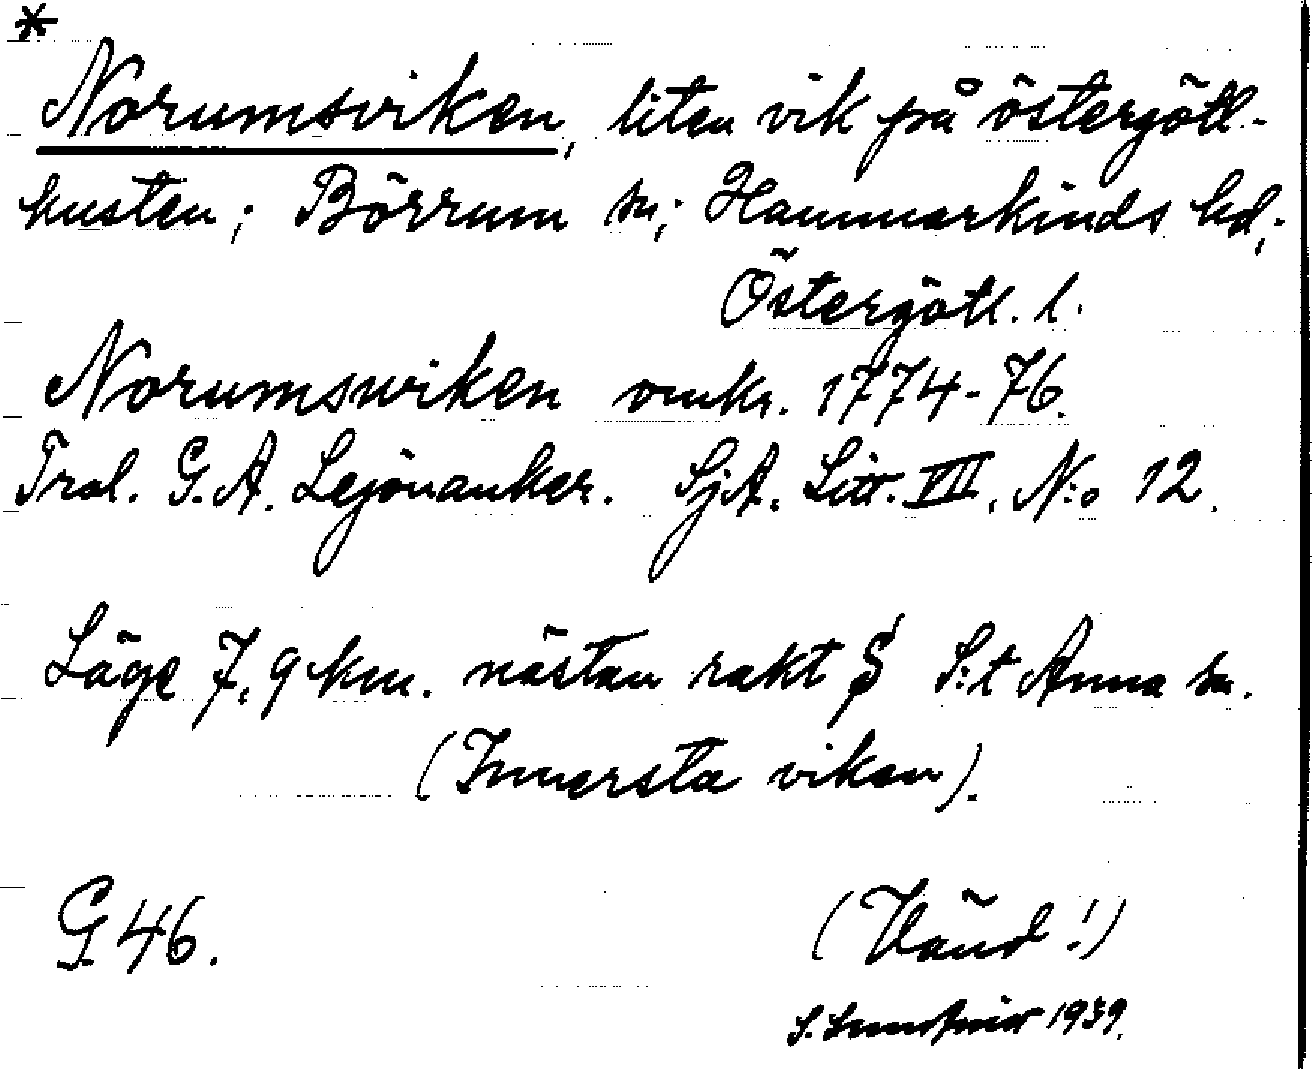 *
Norumsviken, liten vik på östergötl.-
kusten; Börrum sn; Hammarkinds hd,;
Östergötl. l.
Norumswiken omkr. 1774-76.
Trol. G. A. Lejonanker. SjA. Litt. VII, N:o 12.
Läge 7,9 km. nästan rakt S S:t Anna sn.
(Innersta viken).
G 46.
(Vänd!)
S. 1939.